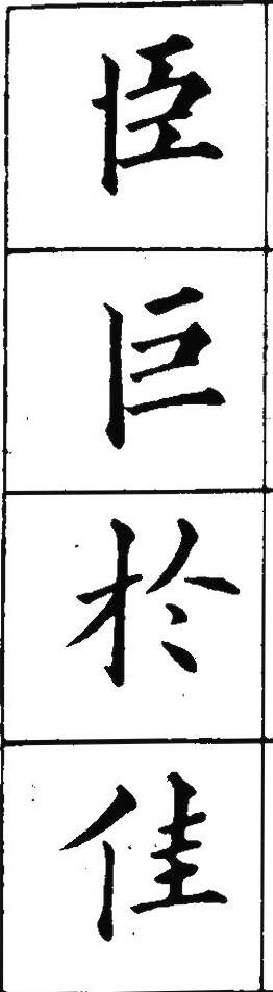 臣
巨
於
佳